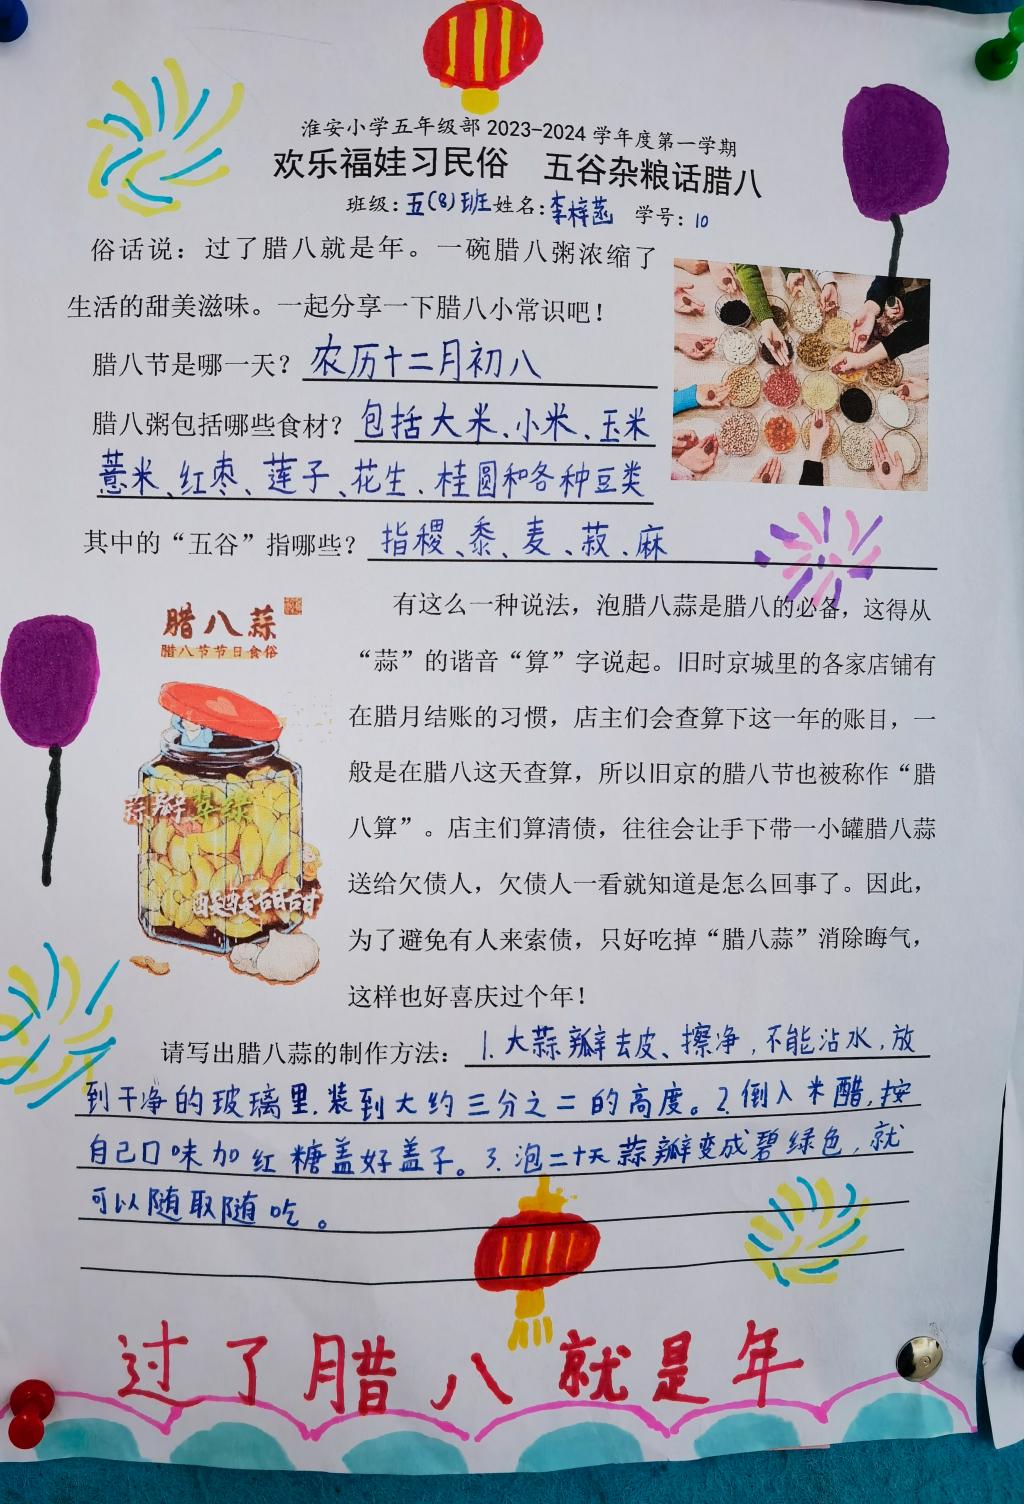 淮安小学五年级部 2023-2024 学年度第一学期
欢乐福娃习民俗 五谷杂粮话腊八
班级：五(8)班姓名：李梓菡 学号：10
俗话说：过了腊八就是年。一碗腊八粥浓缩了
生活的甜美滋味。一起分享一下腊八小常识吧！
腊八节是哪一天？农历十二月初八
腊八粥包括哪些食材？包括大米、小米、玉米
薏米、红枣、莲子、花生、桂圆和各种豆类
其中的“五谷”指哪些？指稷、黍、麦、菽、麻
腊八蒜
腊八节节日食俗
蒜瓣翠绿
酸酸甜甜
有这么一种说法，泡腊八蒜是腊八的必备，这得从
“蒜”的谐音“算”字说起。旧时京城里的各家店铺有
在腊月结账的习惯，店主们会查算下这一年的账目，一
般是在腊八这天查算，所以旧京的腊八节也被称作“腊
八算”。店主们算清债，往往会让手下带一小罐腊八蒜
送给欠债人，欠债人一看就知道是怎么回事了。因此，
为了避免有人来索债，只好吃掉“腊八蒜”消除晦气，
这样也好喜庆过个年！
请写出腊八蒜的制作方法：1.大蒜瓣去皮、擦净，不能沾水，放
到干净的玻璃里，装到大约三分之二的高度。2.倒入米醋，按
自己口味加红糖盖好盖子。3.泡二十天蒜瓣变成碧绿色，就
可以随取随吃。
过了腊八就是年